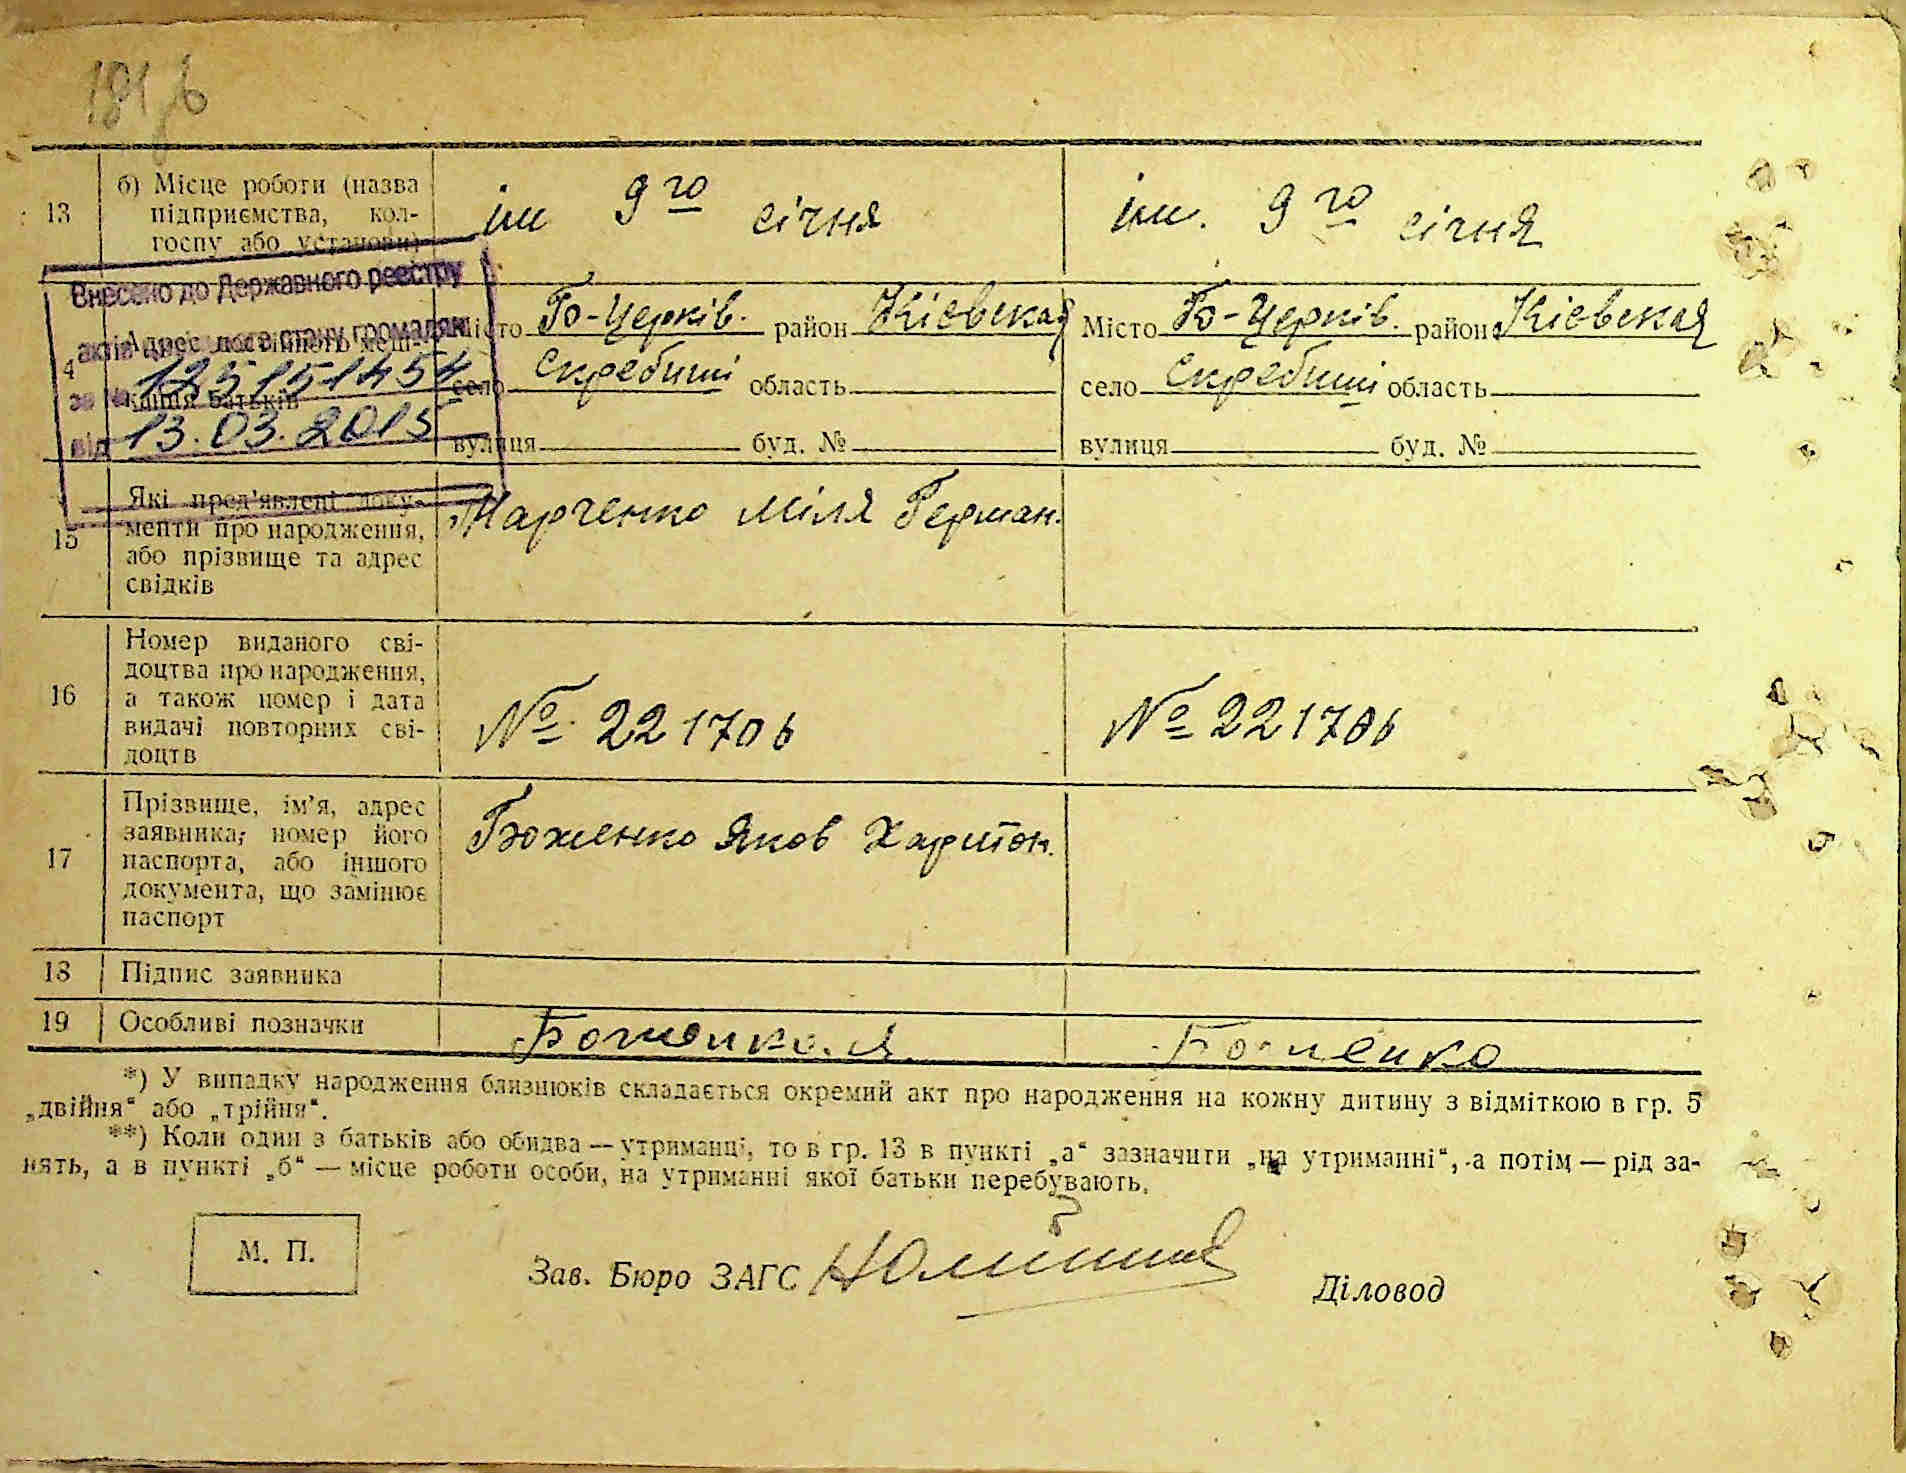 13 б) Місце роботи (назва
підприємства, кол-
госпу або установи)
ім 9го січня
ім. 9го січня
Внесено до Державного реєстру
актів громадян
за № 125151454
від 13.03.2015
Адрес
батьків
Місто Б-Церків. район Кієвская
село Скребиші область
вулиця буд. №
Місто Б-Церків. район Кієвская
село Скребиші область
вулиця буд. №
15 Які пред'явлені доку-
менти про народження,
або прізвище та адрес
свідків
Марченко Міля Герман.
16 Номер виданого сві-
доцтва про народження,
а також номер і дата
видачі повторних сві-
доцтв
№ 221706
№ 221706
17 Прізвище, ім'я, адрес
заявника, номер його
паспорта, або іншого
документа, що замінює
паспорт
Боженко Яков Харитон.
18 Підпис заявника
19 Особливі позначки
Боженко. Я.
Боженко
*) У випадку народження близнюків складається окремий акт про народження на кожну дитину з відміткою в гр. 5
„двійня“ або „трійня“.
**) Коли один з батьків або обидва — утриманці, то в гр. 13 в пункті „а“ зазначити „на утриманні“, а потім — рід за-
нять, а в пункті „б“ — місце роботи особи, на утриманні якої батьки перебувають.
М. П.
Зав. Бюро ЗАГС
Діловод